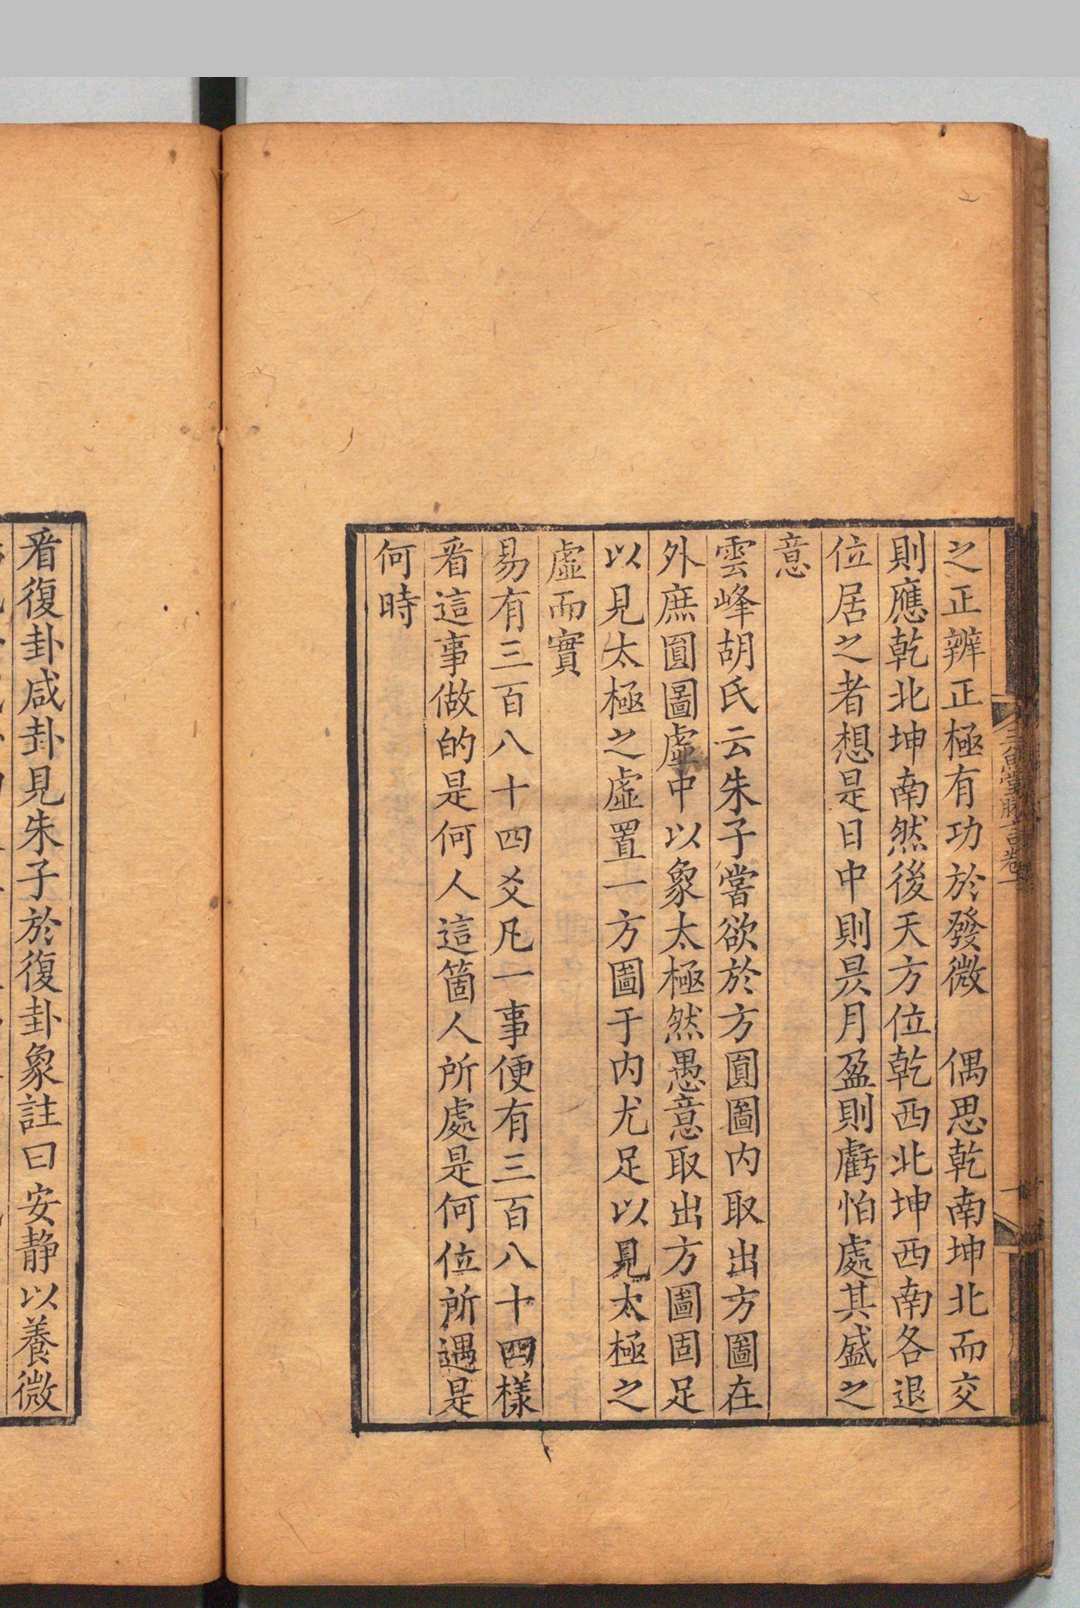 之正辨正極有功於發微　偶思乾南坤北而交
則應乾北坤南然後天方位乾西北坤西南各退
位居之者想是日中則昃月盈則虧怕處其盛之
意
雲峰胡氏云朱子嘗欲於方圓圖內取出方圖在
外庶圓圖虛中以象太極然愚意取出方圖固足
以見太極之虛置一方圖于內尤足以見太極之
虛而實
易有三百八十四爻凡一事便有三百八十四樣
看這事做的是何人這箇人所處是何位所遇是
何時
三魚堂賸言卷一
看復卦咸卦見朱子於復卦象註曰安靜以養微